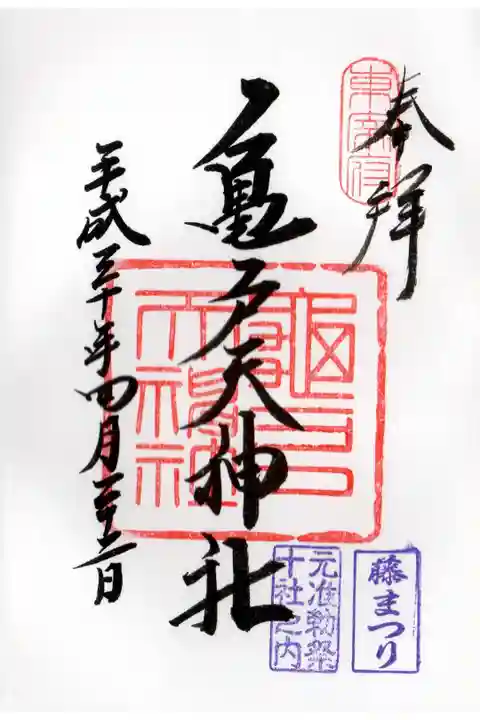 奉拝
東宰府
亀戸天神社
平成三十年四月二十二日
藤まつり
元准勅祭
十社之内